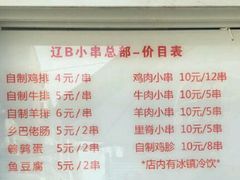 辽B小串总部-价目表
自制鸡排 4元/串 鸡肉小串 10元/12串
自制牛排 5元/串 牛肉小串 10元/5串
自制羊排 6元/串 羊肉小串 10元/5串
乡巴佬肠 5元/2串 里脊小串 10元/5串
鹌鹑蛋 5元/2串 自制鸡胗 10元/8串
鱼豆腐 5元/2串 *店内有冰镇冷饮*